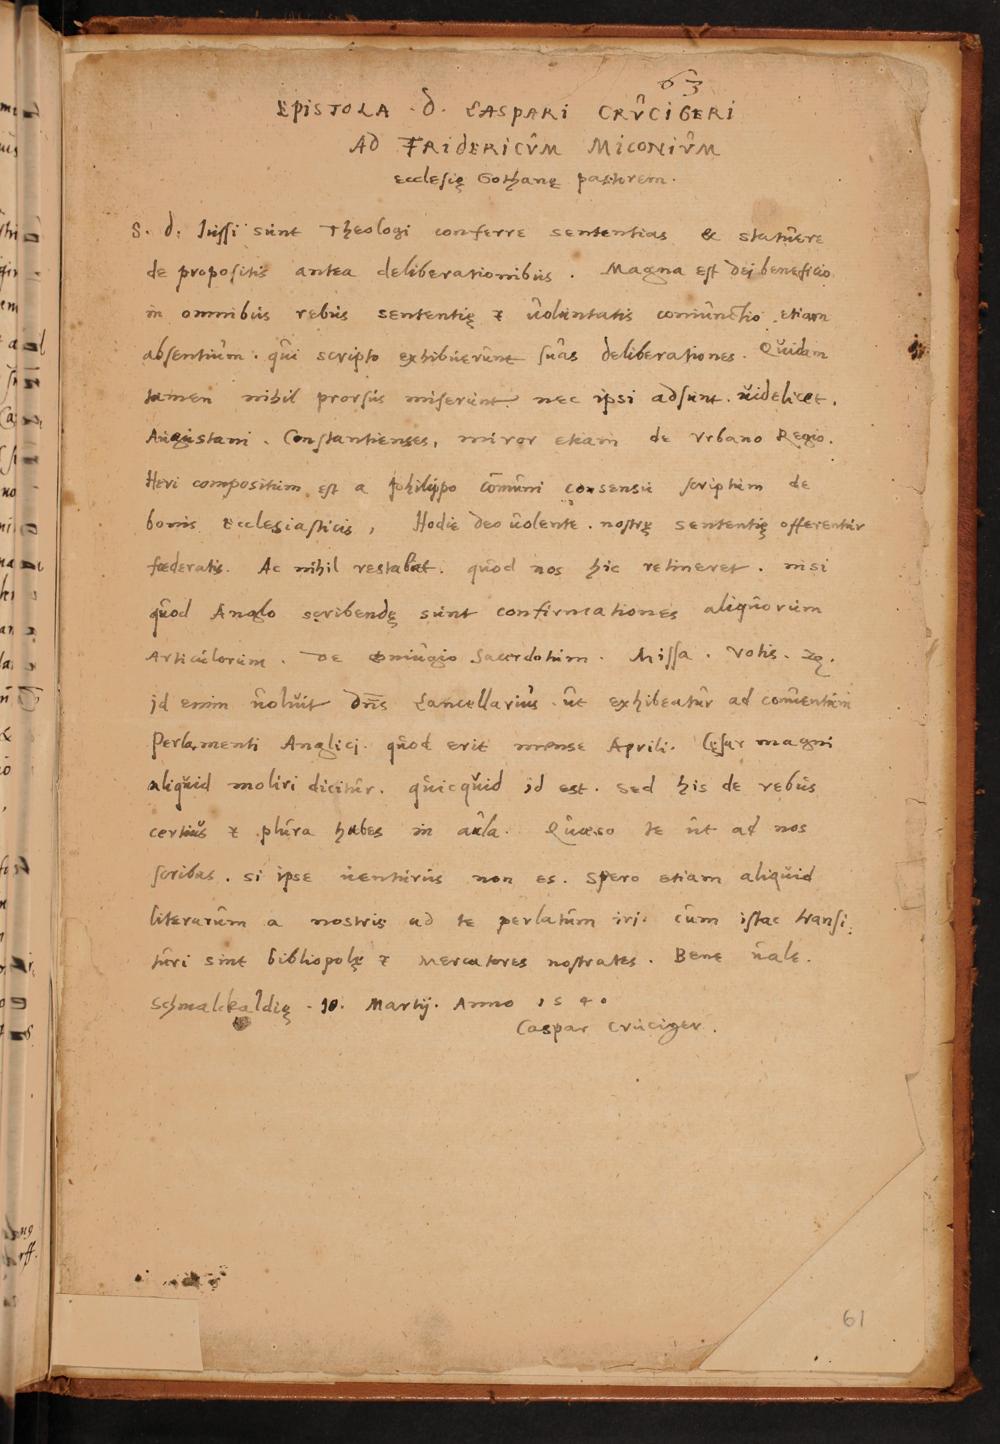 63
EPISTOLA D. CASPARI CRUCIGERI
AD FRIDERICUM MICONIUM
ecclesię Gothanę pastorem.
S. d. Jussi sunt Theologi conferre sententias & statuere
de propositis antea deliberationibus. Magna est dei beneficio
in omnibus rebus sententię & voluntatis coniunctio etiam
absentium. qui scripto exhibuerunt suas deliberationes. Quidam
tamen nihil prorsus miserunt nec ipsi adsunt. uidelicet.
Augustani. Constantienses, miror etiam de Vrbano Regio.
Heri compositum est a philippo comuni consensu scriptum de
bonis Ecclesiasticis, Hodie deo uolente. nostrę sententię offerentur
fœderatis. Ac nihil restabat. quod nos hic retineret. nisi
quod Anglo scribendę sunt confirmationes aliquorum
Articulorum. De coniugio Sacerdotum. Missa. Votis. &c.
id enim uoluit dn̄s Cancellarius. ut exhibeatur ad conuentum
Perlamenti Anglici. quod erit mense Aprili. Cęsar magni
aliquid moliri dicitur. quicquid id est. sed his de rebus
certius & plura habes in aula. Quæso te ut ad nos
scribas. si ipse uenturus non es. Spero etiam aliquid
literarum a nostris ad te perlatum iri. cum istac transi:
turi sint bibliopolę & Mercatores nostrates. Bene uale.
Schmalkaldię. 10. Martij. Anno 1540
Caspar Cruciger.
61